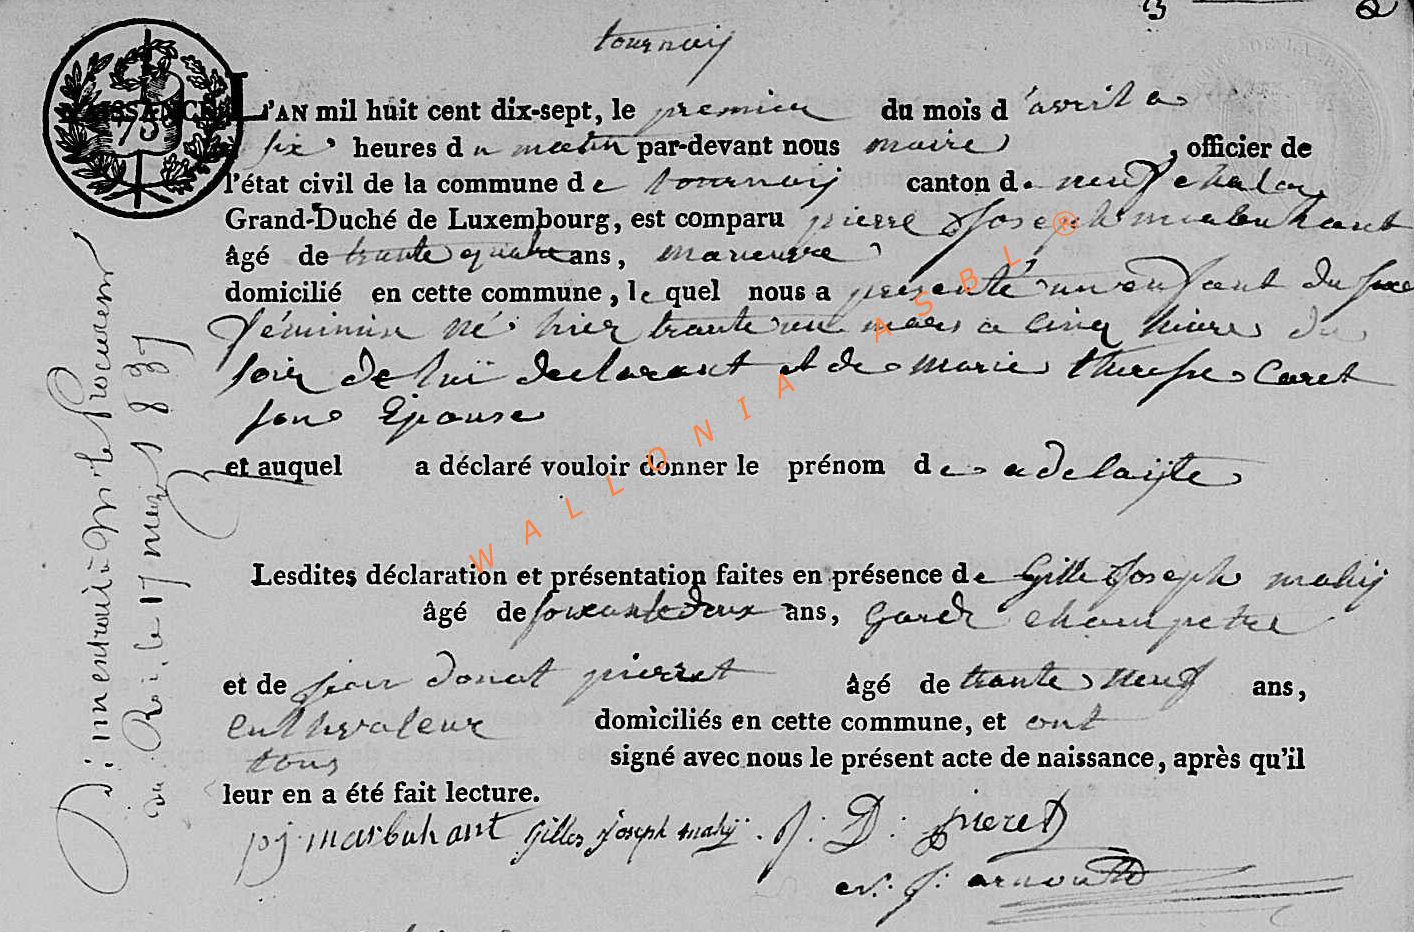 tournay
NAISSANCE 73 L'AN mil huit cent dix-sept, le premier du mois d'avril a
six heures du matin par-devant nous maire, officier de
l'état civil de la commune de tournay canton de neufchateau
Grand-Duché de Luxembourg, est comparu pierre Joseph marbuhant
âgé de trante quatre ans, maneuvre
domicilié en cette commune, le quel nous a présenté un enfant du sexe
féminin né hier trante un mars a cinq heures du
soir de lui declarant et de marie therese Caret
son Epouse
et auquel a déclaré vouloir donner le prénom de adelaïte
Lesdites déclaration et présentation faites en présence de Gille Joseph mahy
âgé de soixante deux ans, Garde champetre
et de jean donat pierret âgé de trante neuf ans,
cultivateur domiciliés en cette commune, et ont
tous signé avec nous le présent acte de naissance, après qu'il
leur en a été fait lecture.
pj marbuhant Gilles Joseph mahy. J: D: pieret
J: arnould
extrait à Mr le Procureur
du Roi le 17 1837
WALLONIA ASBL ®